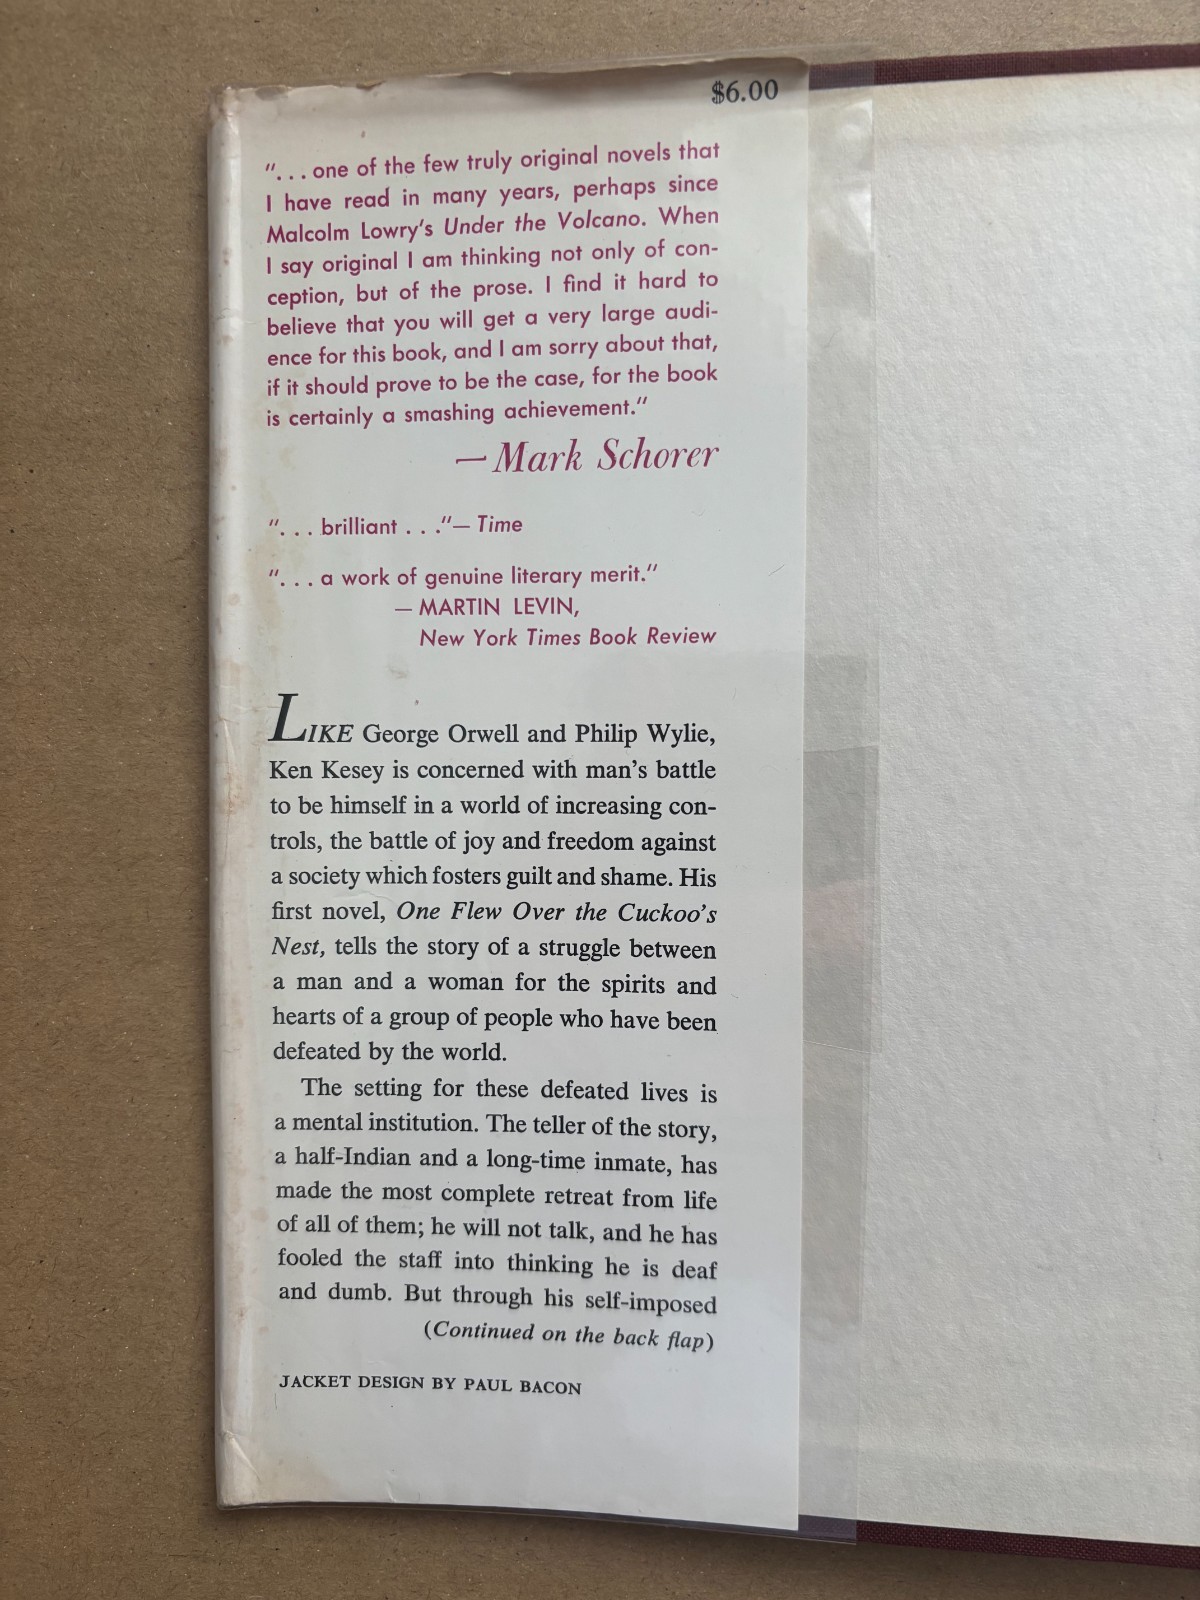 $6.00
". . . one of the few truly original novels that
I have read in many years, perhaps since
Malcolm Lowry's Under the Volcano. When
I say original I am thinking not only of con-
ception, but of the prose. I find it hard to
believe that you will get a very large audi-
ence for this book, and I am sorry about that,
if it should prove to be the case, for the book
is certainly a smashing achievement."
—Mark Schorer
". . . brilliant . . ."— Time
". . . a work of genuine literary merit."
— MARTIN LEVIN,
New York Times Book Review
LIKE George Orwell and Philip Wylie,
Ken Kesey is concerned with man's battle
to be himself in a world of increasing con-
trols, the battle of joy and freedom against
a society which fosters guilt and shame. His
first novel, One Flew Over the Cuckoo's
Nest, tells the story of a struggle between
a man and a woman for the spirits and
hearts of a group of people who have been
defeated by the world.
The setting for these defeated lives is
a mental institution. The teller of the story,
a half-Indian and a long-time inmate, has
made the most complete retreat from life
of all of them; he will not talk, and he has
fooled the staff into thinking he is deaf
and dumb. But through his self-imposed
(Continued on the back flap)
JACKET DESIGN BY PAUL BACON